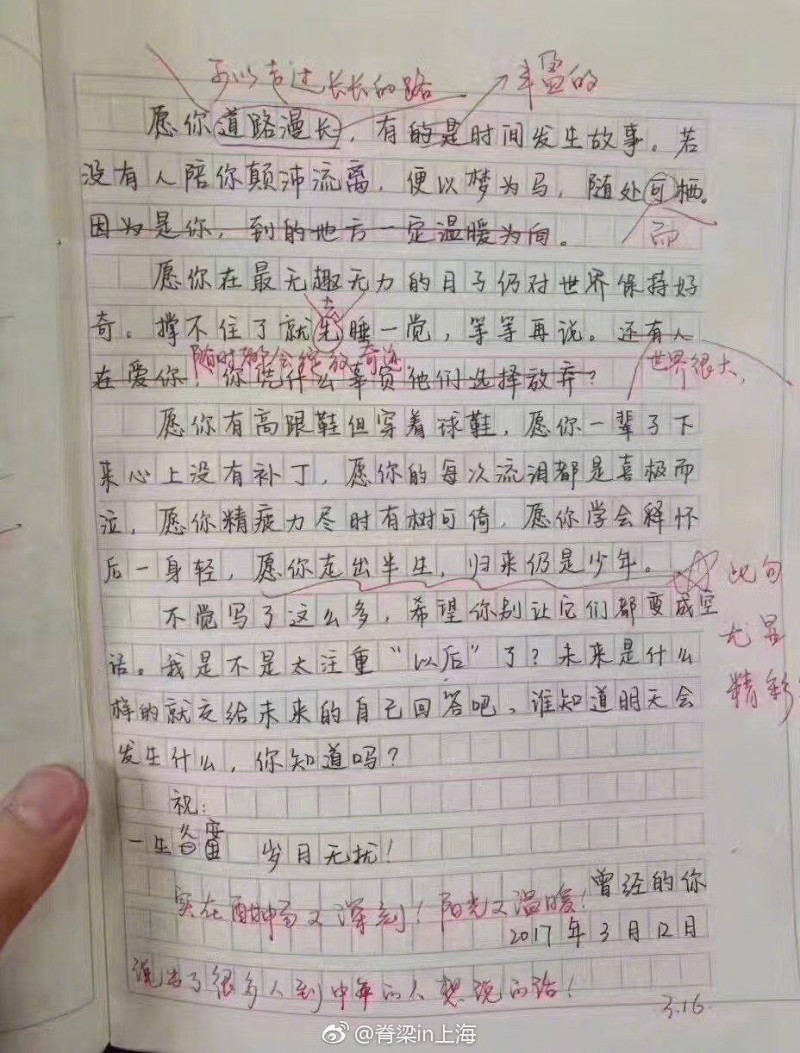 可以走过长长的路 丰盈的
愿你道路漫长，有的是时间发生故事。若
没有人陪你颠沛流离，便以梦为马，随处可栖。
因为是你，到的地方一定温暖为向。 而
愿你在最无趣无力的日子仍对世界保持好
去
奇。撑不住了就先睡一觉，等等再说。还有人
随时都会绽放奇迹 世界很大，
在爱你，你凭什么辜负他们选择放弃？
愿你有高跟鞋但穿着球鞋，愿你一辈子下
来心上没有补丁，愿你的每次流泪都是喜极而
泣，愿你精疲力尽时有树可倚，愿你学会释怀
后一身轻，愿你走出半生，归来仍是少年。
此句
尤显
精彩
不觉写了这么多，希望你别让它们都变成空
话。我是不是太注重“以后”了？未来是什么
样的就交给未来的自己回答吧，谁知道明天会
发生什么，你知道吗？
祝：
一生 岁月无扰！
曾经的你
实在酣畅又深刻！阳光又温暖！
2017年3月12日
说出了很多人到中年的人想说的话！
3.16.
@脊梁in上海